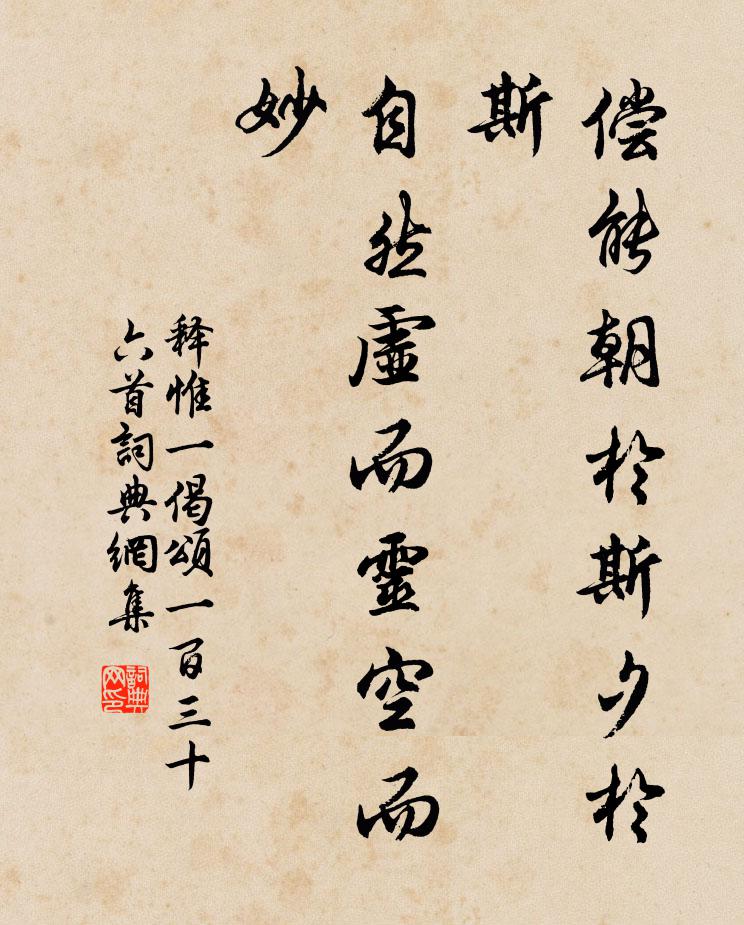 偿能朝於斯夕於
斯
自然虛而靈空而
妙
释惟一偈頌一百三十
六首詞典網集
詞典网印